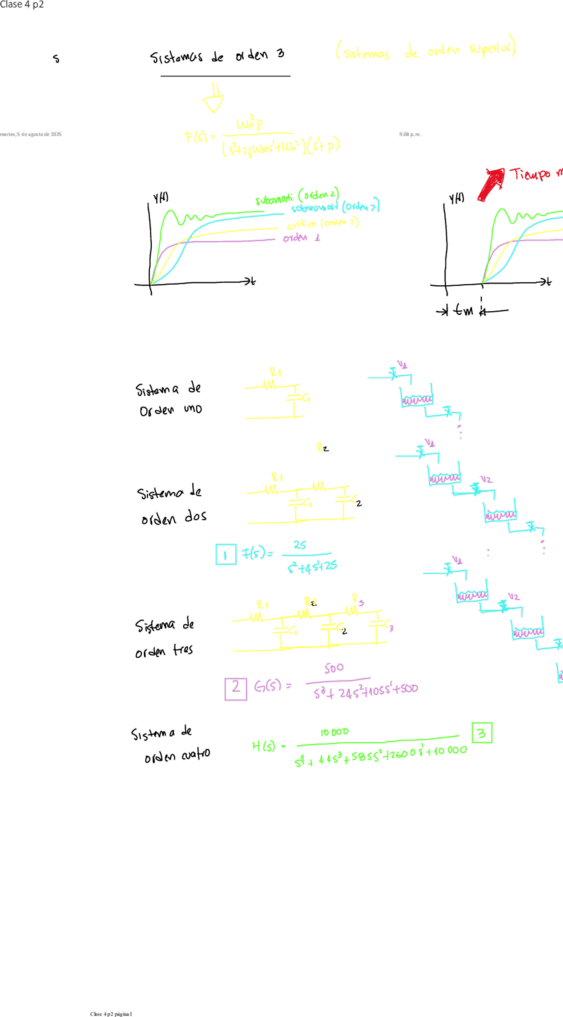 Clase 4 p2
s
Sistemas de orden 3
(sistemas de orden superior)
martes, 5 de agosto de 2025
9:08 p. m.
F(s) = ωn²p / (s²+2ρωns¹+ωn²)(s¹+p)
y(t)
subamorti (orden 2)
sobreamorti (orden 2)
critico (orden 2)
orden 1
t
Tiempo m
y(t)
t
tm
Sistema de
Orden uno
R1
C1
V1
Sistema de
orden dos
R1
R2
C1
2
V1
V2
1 F(s) = 25 / s²+4s¹+25
Sistema de
orden tres
R1
R2
R3
C1
C2
C3
V1
V2
2 G(s) = 500 / s³+24s²+105s¹+500
Sistema de
orden cuatro
H(s) = 10000 / s⁴+44s³+585s²+2600s¹+10000
3
Clase 4 p2 página 1